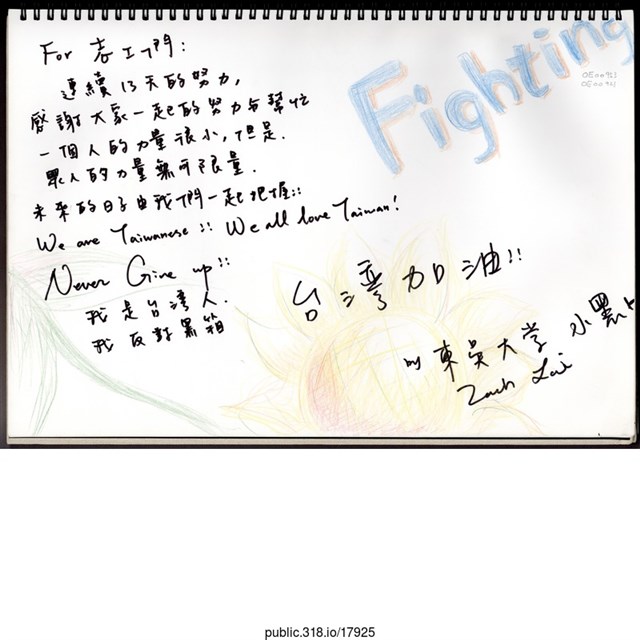 For 志工們:
連續13天的努力,
感謝大家一起的努力与幫忙
一個人的力量很小,但是.
眾人的力量無可限量.
未來的日子由我們一起把握!!
We are Taiwanese !! We all love Taiwan!
Never Give up!!
我是台灣人.
我反對黑箱
Fighting
台灣加油!!
by 東吳大学 小墨
Zach Lai
public.318.io/17925